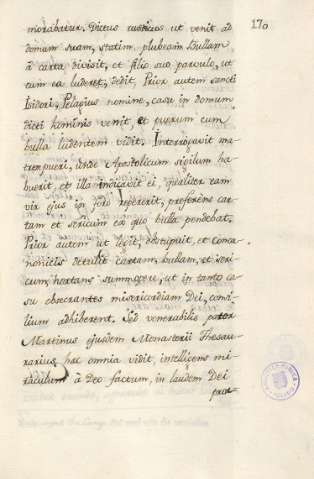 170
morabatur. Dictus rusticus ut venit ad
domum suam, statim plubeam Bullam
à carta divisit, et filio suo parvulo, ut
cum ea luderet, dedit, Prior autem sancti
Isidori, Pelagius nomine, casu in domum
dicti hominis venit et puerum cum
bulla ludentem vidit. Interrogavit ma-
trem pueri, unde Apostolicum sigilum ha
buerit, et illa indicavit ei, qualiter eam
vir ejus in foro repererit, proferens car-
tam et sericum ex quo bulla pendebat.
Prior autem ut legit, obstipuit, et conca-
nonicis detulit cartam, bullam, et seri-
cum, hortans summopere, ut in tanto ca-
su obsecrantes misericordiam Dei, consi-
lium adhiberent. Sed venerabilis pater
Martinus ejusdem Monasterii Thesau-
rarius, hæc omnia vidit, intelligens mi-
raculum à Deo factum, in laudem Dei
pror-